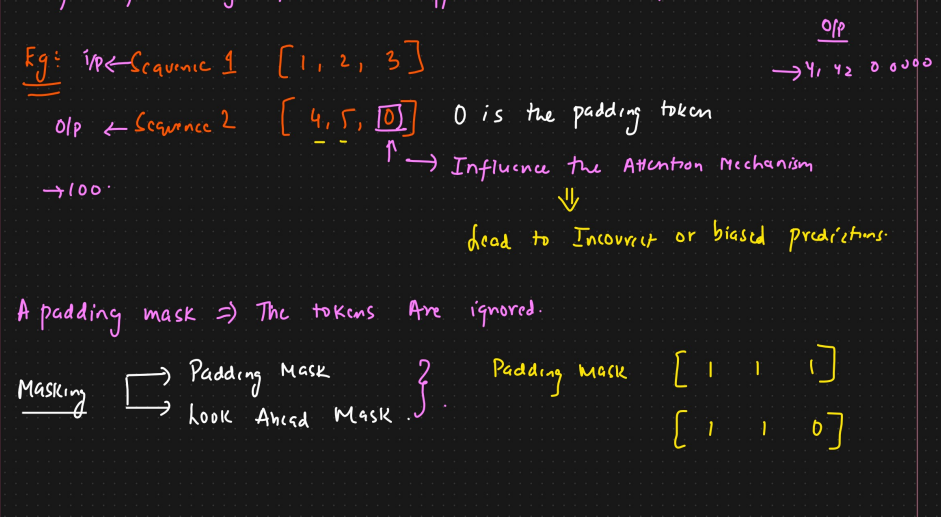 O/P
Eg: i/p ← Sequence 1 [1, 2, 3]
→ y1 y2 0 0 0 0 0
O/p ← Sequence 2 [4, 5, 0] 0 is the padding token
↑ → Influence the Attention Mechanism
→ 100.
⇓
Lead to Incorrect or biased predictions.
A padding mask ⇒ The tokens Are ignored.
Masking → Padding Mask
→ Look Ahead Mask.
Padding mask [1 1 1]
[1 1 0]